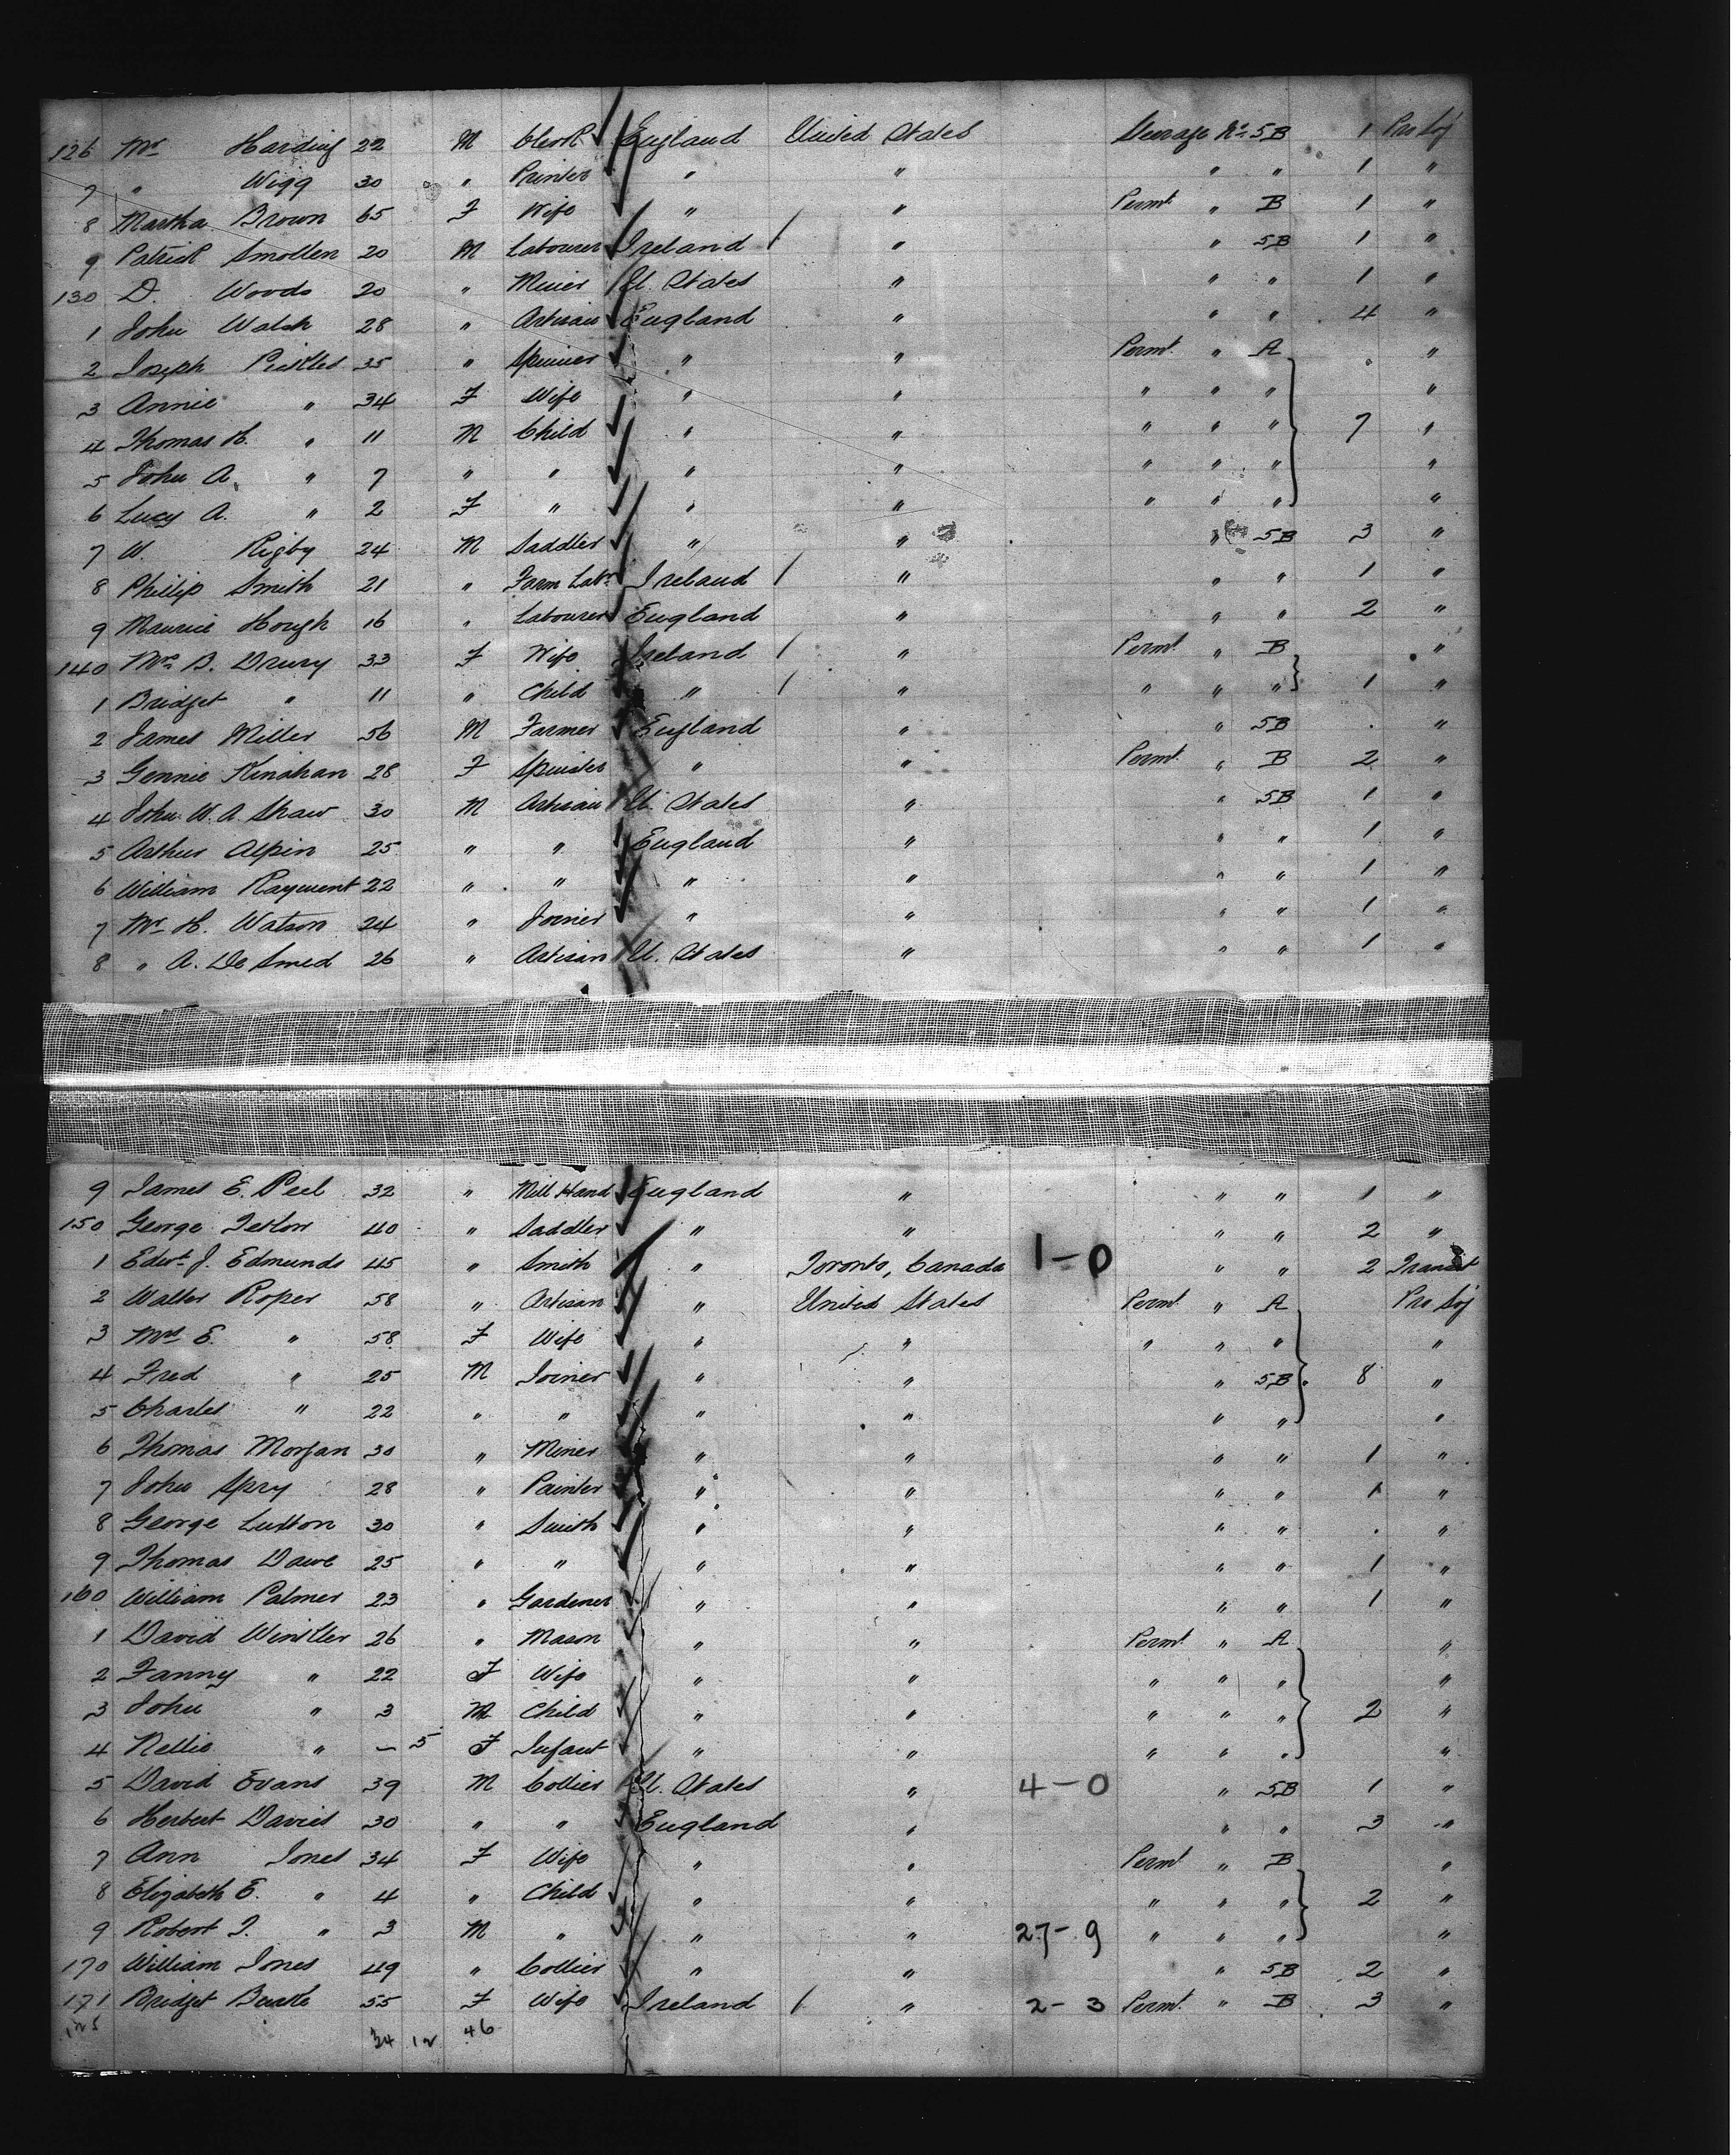 126 Mr Harding 22 M Clerk England United States Steerage No 5B 1 Pro Soj
7 " Wigg 30 " Printer " " " " 1 "
8 Martha Brown 65 F Wife " " Permt " B 1 "
9 Patrick Smollen 20 M Labourer Ireland / " " 5B 1 "
130 D. Woods 20 " Miner U. States " " " 1 "
1 John Walsh 28 " Artisan England " " " 4 "
2 Joseph Pickles 35 " Spinner " " Permt. " A "
3 Annie " 34 F Wife " " " " " "
4 Thomas H. " 11 M Child " " " " " 7 "
5 John A. " 7 " " " " " " " "
6 Lucy A. " 2 F " " " " " " "
7 W. Rigby 24 M Saddler " " " 5B 3 "
8 Phillip Smith 21 " Farm Labr Ireland / " " " 1 "
9 Maurice Hough 16 " Labourer England " " " 2 "
140 Mrs B. Drury 33 F Wife Ireland / " Permt " B "
1 Bridget " 11 " Child " / " " " " 1 "
2 James Miller 56 M Farmer England " " 5B . "
3 Gennie Kinahan 28 F Spinster " " Permt. " B 2 "
4 John W. A. Shaw 30 M Artisan U. States " " 5B 1 "
5 Arthur Alpin 25 " " England " " " 1 "
6 William Rayment 22 " " " " " " 1 "
7 Mr H. Watson 24 " Joiner " " " " 1 "
8 " A. De Smed 26 " Artisan U. States " " " 1 "
9 James E. Peel 32 " Mill Hand England " " " 1 "
150 George 40 " Saddler " " " " 2 "
1 Edwd J. Edmunds 45 " Smith " Toronto, Canada 1-0 " " 2 Transit
2 Walter Roper 58 " Artisan " United States Permt " A Pro Soj
3 Mrs E. " 58 F Wife " " " " " "
4 Fred " 25 M Joiner " " " 5B 8 "
5 Charles " 22 " " " " " " "
6 Thomas Morgan 30 " Miner " " " " 1 "
7 John Spry 28 " Painter " " " " 1 "
8 George Luxton 30 " Smith " " " " . "
9 Thomas Dawe 25 " " " " " " 1 "
160 William Palmer 23 " Gardener " " " " 1 "
1 David Winkler 26 " Mason " " Permt " A "
2 Fanny " 22 F Wife " " " " " "
3 John " 3 M Child " " " " " 2 "
4 Nellie " - 5 F Infant " " " " " "
5 David Evans 39 M Collier U. States " 4-0 " 5B 1 "
6 Herbert Davies 30 " " England " " " 3 "
7 Ann Jones 34 F Wife " " Permt " B "
8 Elizabeth E. " 4 " Child " " " " " 2 "
9 Robert J. " 3 M " " " 27-9 " " " "
170 William Jones 49 " Collier " " " 5B 2 "
171 Bridget Burke 55 F Wife Ireland / " 2-3 Permt. " B 3 "
34 12 46